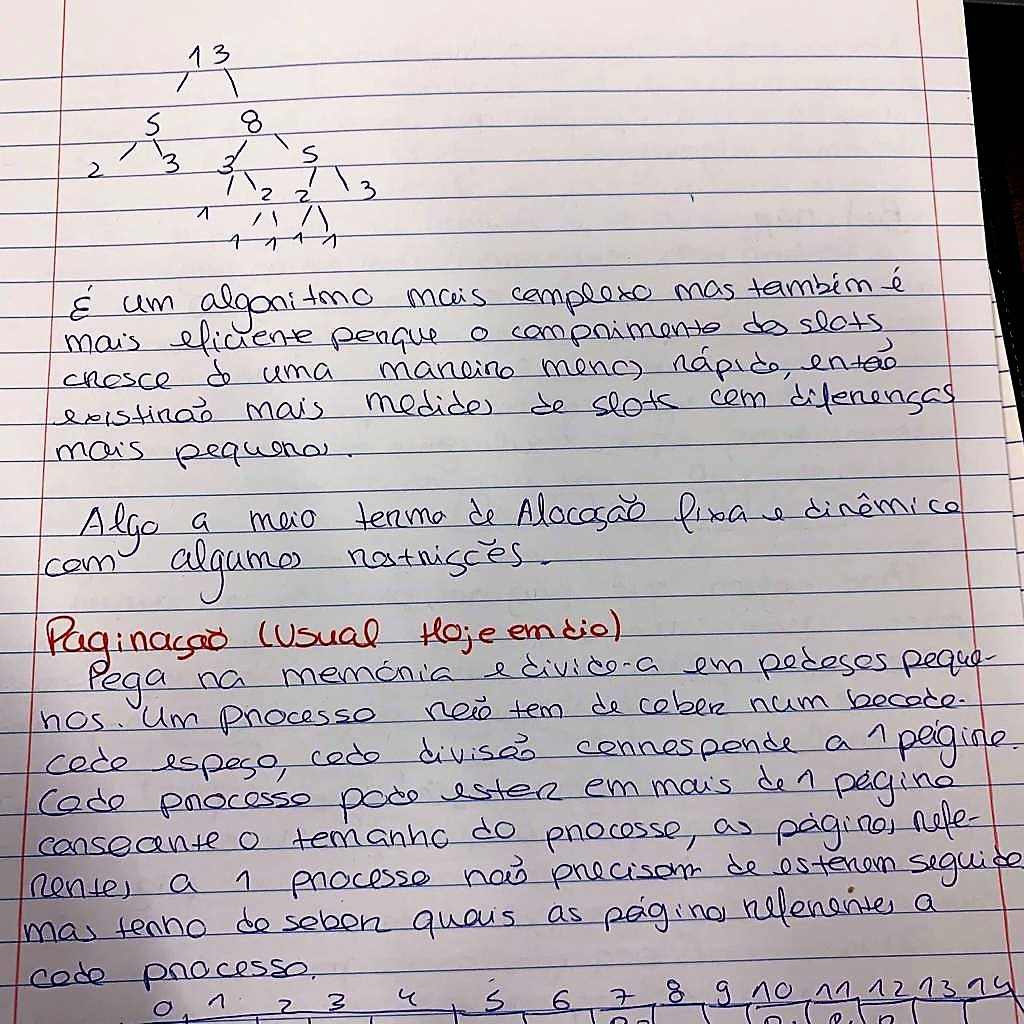 13
5 8
2 3 3 5
1 2 2 3
1 1 1 1
É um algoritmo mais complexo mas também é
mais eficiente porque o comprimento dos slots
cresce de uma maneira menos rápida, então
existirão mais medidas de slots com diferenças
mais pequenas.
Algo a meio termo de Alocação fixa e dinâmica
com algumas restrições.
Paginação (Usual Hoje em dia)
Pega na memória e divide-a em pedaços peque-
nos. Um processo não tem de caber num bocado.
cada espaço, cada divisão corresponde a 1 página.
Cada processo pode estar em mais de 1 página
consoante o tamanho do processo, as páginas refe-
rentes a 1 processo não precisam de estarem seguidas
mas tenho de saber quais as páginas referentes a
cada processo.
0 1 2 3 4 5 6 7 8 9 10 11 12 13 14